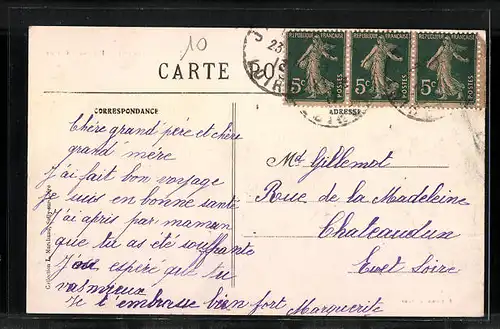 10
RÉPUBLIQUE FRANÇAISE RÉPUBLIQUE FRANÇAISE RÉPUBLIQUE FRANÇAISE
5c POSTES 5c POSTES 5c POSTES
23
CARTE PO
CORRESPONDANCE
ADRESSE
Chère grand' père et chère
grand' mère
J'ai fait bon voyage
je suis en bonne santé
J'ai apris par maman
que tu as été souffrante
J'ose espiré que tu
vas mieux
Je t'embrasse bien fort Marguerite
Md Gillemot
Rue de la Madeleine
Chateaudun
Euet Loire
Collection L. Marchand,